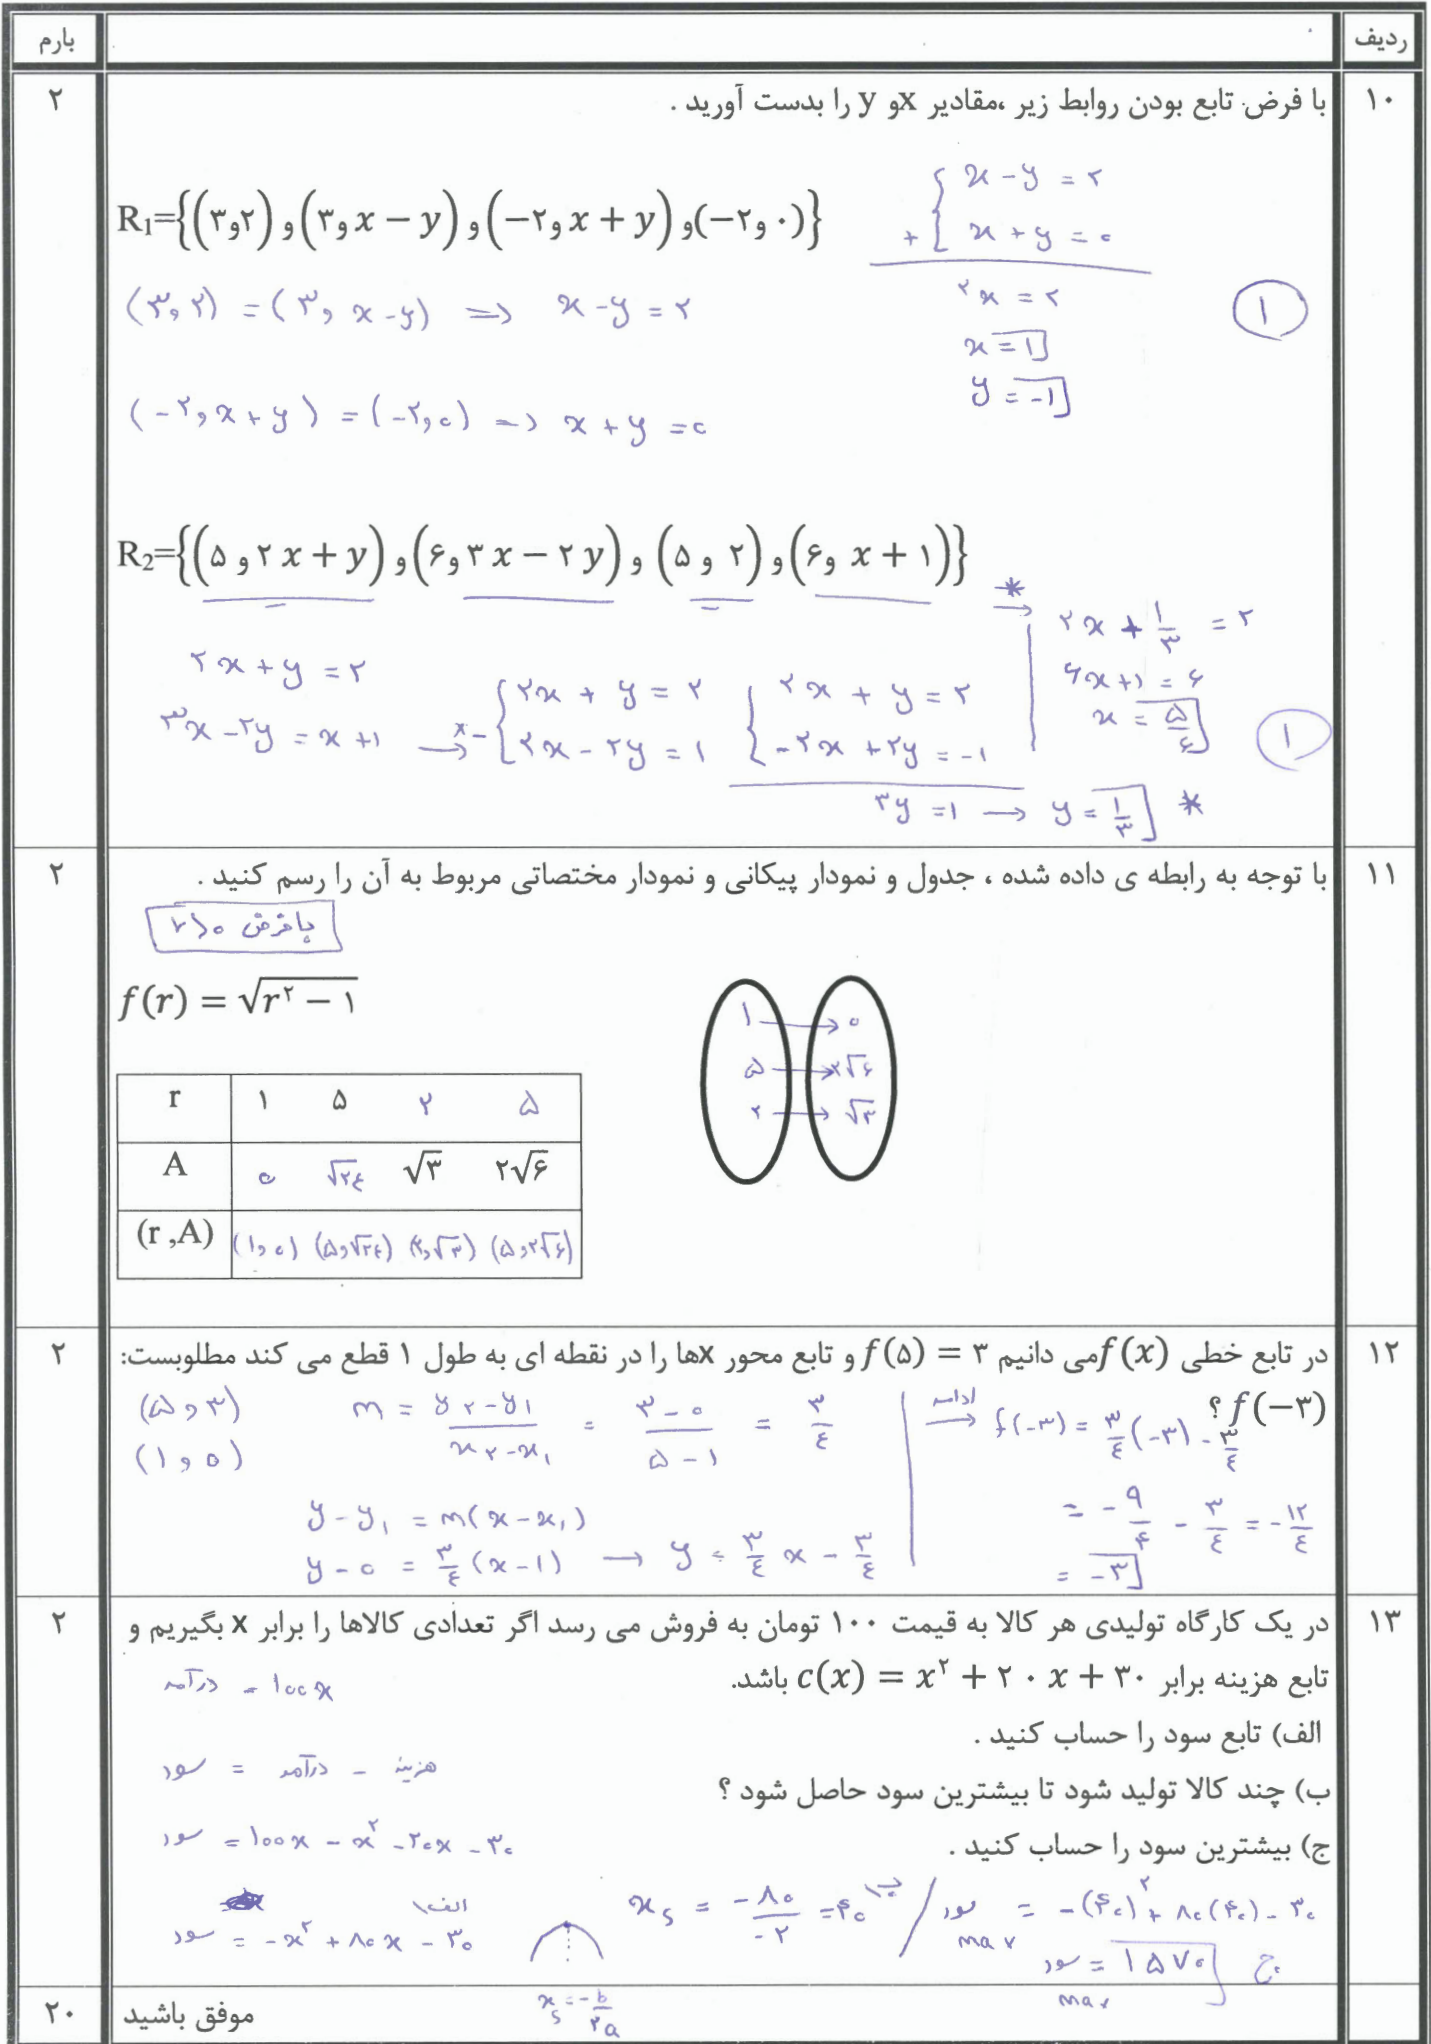 ردیف
بارم
۱۰
با فرض تابع بودن روابط زیر ،مقادیر xو y را بدست آورید .
۲
R₁={(۳و۲) و (۳و x − y) و (−۲و x + y) و(−۲و ۰)}
(۳و ۲) = (۳و x-y) => x-y = ۲
(-۲و x+y) = (-۲و ۰) => x+y = ۰
x-y = ۲
+ x+y = ۰
۲x = ۲
x = ۱
y = -۱
۱
R₂={(۵ و ۲ x + y) و (۶و ۳ x − ۲ y) و (۵ و ۲) و (۶و x + ۱)}
۲x+y = ۲
۳x-۲y = x+۱ → x- { ۲x + y = ۲
۲x - ۲y = ۱
۲x + y = ۲
-۲x + ۲y = -۱
۳y = ۱ → y = ۱/۳ *
* → ۲x + ۱/۳ = ۲
۶x+۱ = ۶
x = ۵/۶
۱
۱۱
با توجه به رابطه ی داده شده ، جدول و نمودار پیکانی و نمودار مختصاتی مربوط به آن را رسم کنید .
۲
بافرض r>۰
f(r) = √(r² − ۱)
r ۱ ۵ ۲ ۵
A ۰ √۲٤ √۳ ۲√۶
(r ,A) (۱و۰) (۵و√۲٤) (۲و√۳) (۵و۲√۶)
۱ → ۰
۵ → ۲√۶
۲ → √۳
۱۲
در تابع خطی f (x)می دانیم f(۵) = ۳ و تابع محور xها را در نقطه ای به طول ۱ قطع می کند مطلوبست:
۲
f(−۳) ؟
(۵ و ۳)
(۱ و ۰)
m = (y۲-y۱)/(x۲-x۱) = (۳-۰)/(۵-۱) = ۳/٤
y-y₁ = m(x-x₁)
y-۰ = ۳/٤(x-۱) → y = ۳/٤ x - ۳/٤
ادامه → f(-۳) = ۳/٤(-۳) - ۳/٤
= -۹/۴ - ۳/٤ = -۱۲/٤
= -۳
۱۳
در یک کارگاه تولیدی هر کالا به قیمت ۱۰۰ تومان به فروش می رسد اگر تعدادی کالاها را برابر x بگیریم و
۲
تابع هزینه برابر c(x) = x² + ۲۰x + ۳۰ باشد.
درآمد = ۱۰۰x
الف) تابع سود را حساب کنید .
هزینه - درآمد = سود
ب) چند کالا تولید شود تا بیشترین سود حاصل شود ؟
سود = ۱۰۰x - x² - ۲۰x - ۳۰
ج) بیشترین سود را حساب کنید .
الف)
سود = -x² + ۸۰x - ۳۰
ب) xₛ = -۸۰/-۲ = ۴۰
سود max = -(۴۰)² + ۸۰(۴۰) - ۳۰
ج) سود max = ۱۵۷۰
xₛ = -b/۲a
موفق باشید
۲۰